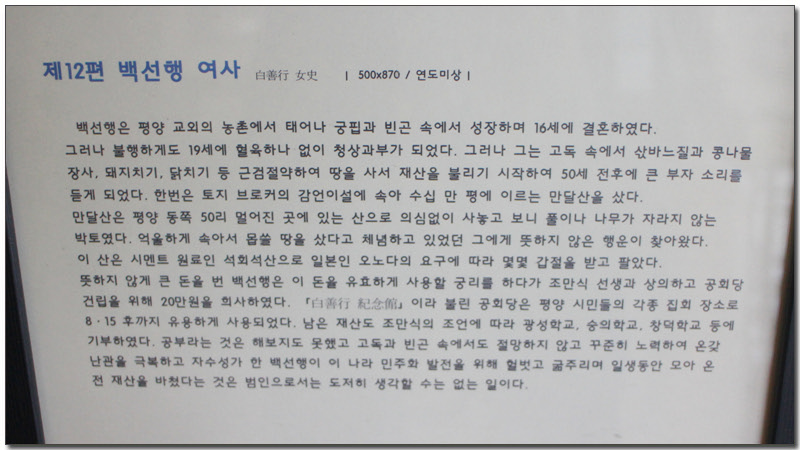 제12편 백선행 여사 白善行 女史 | 500x870 / 연도미상 |
백선행은 평양 교외의 농촌에서 태어나 궁핍과 빈곤 속에서 성장하며 16세에 결혼하였다.
그러나 불행하게도 19세에 혈육하나 없이 청상과부가 되었다. 그러나 그는 고독 속에서 삯바느질과 콩나물
장사, 돼지치기, 닭치기 등 근검절약하여 땅을 사서 재산을 불리기 시작하여 50세 전후에 큰 부자 소리를
듣게 되었다. 한번은 토지 브로커의 감언이설에 속아 수십 만 평에 이르는 만달산을 샀다.
만달산은 평양 동쪽 50리 멀어진 곳에 있는 산으로 의심없이 사놓고 보니 풀이나 나무가 자라지 않는
박토였다. 억울하게 속아서 몹쓸 땅을 샀다고 체념하고 있었던 그에게 뜻하지 않은 행운이 찾아왔다.
이 산은 시멘트 원료인 석회석산으로 일본인 오노다의 요구에 따라 몇몇 갑절을 받고 팔았다.
뜻하지 않게 큰 돈을 번 백선행은 이 돈을 유효하게 사용할 궁리를 하다가 조만식 선생과 상의하고 공회당
건립을 위해 20만원을 희사하였다. 「白善行 紀念館」이라 불린 공회당은 평양 시민들의 각종 집회 장소로
8·15 후까지 유용하게 사용되었다. 남은 재산도 조만식의 조언에 따라 광성학교, 숭의학교, 창덕학교 등에
기부하였다. 공부라는 것은 해보지도 못했고 고독과 빈곤 속에서도 절망하지 않고 꾸준히 노력하여 온갖
난관을 극복하고 자수성가 한 백선행이 이 나라 민주화 발전을 위해 헐벗고 굶주리며 일생동안 모아 온
전 재산을 바쳤다는 것은 범인으로서는 도저히 생각할 수는 없는 일이다.